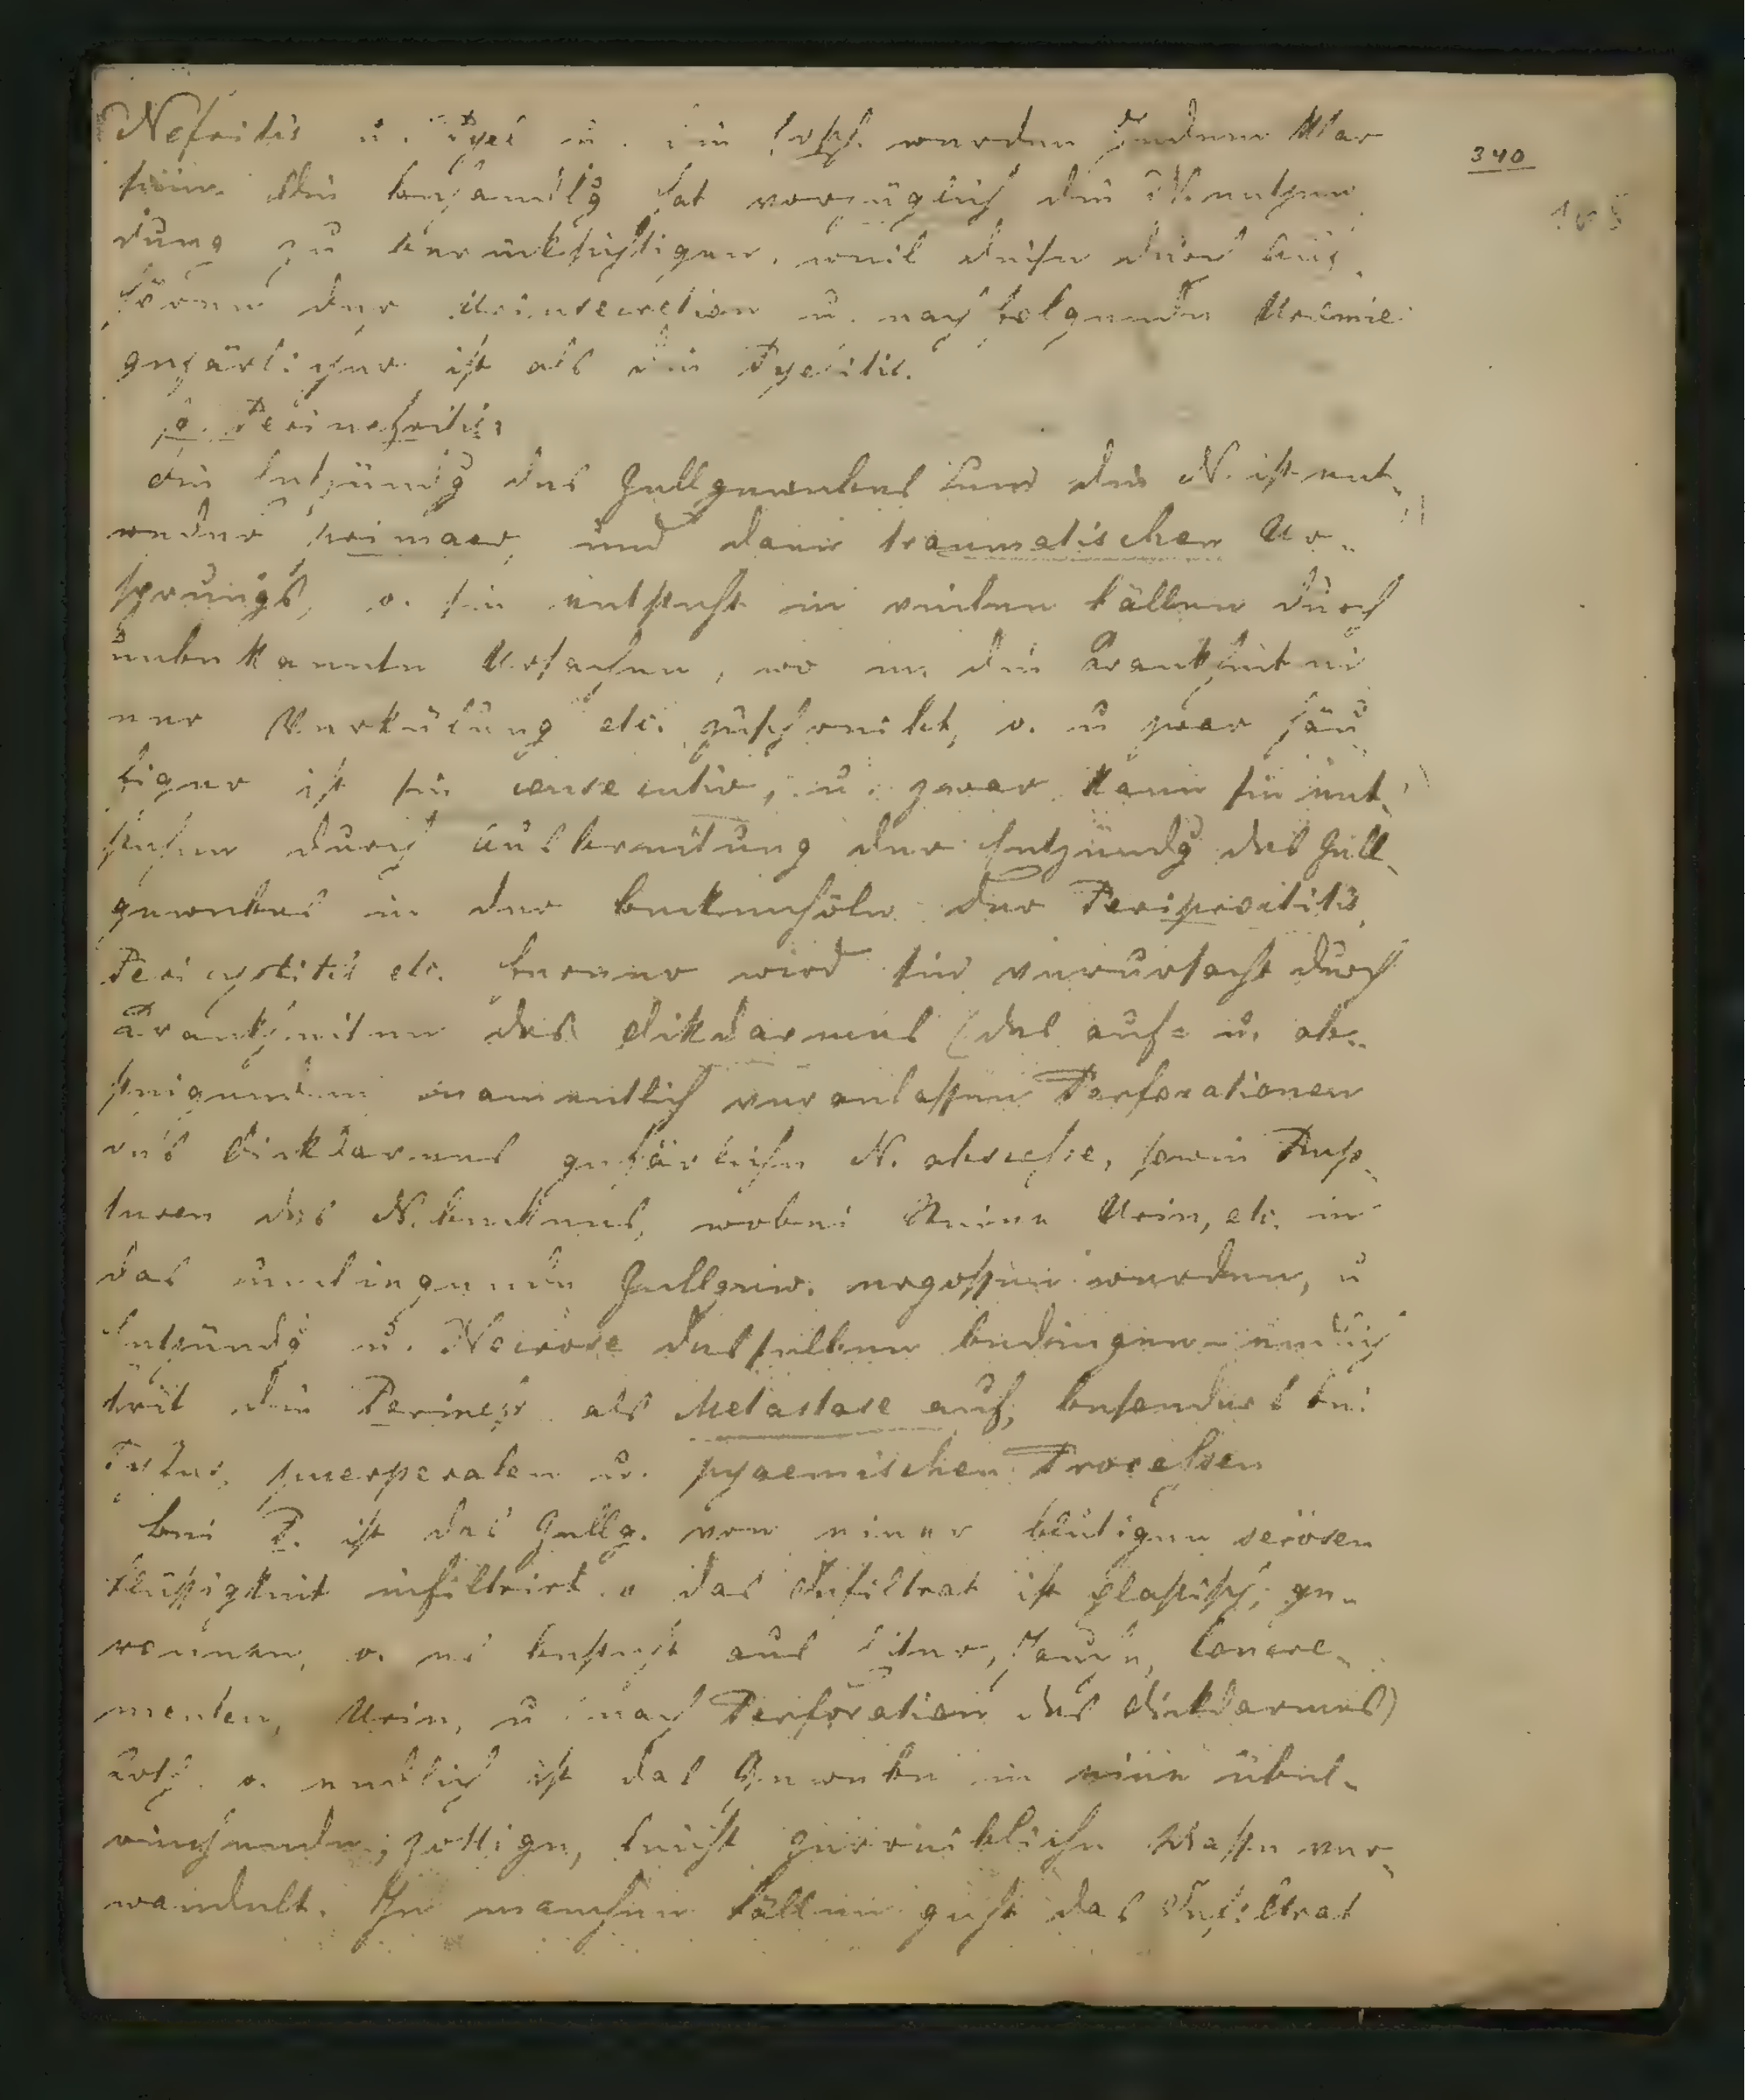 340
Nefritis u. Pyel u. die werden jedem klar
sein. Die behandlg hat vorzüglich die N. entzün
dung zu berücksichtigen, weil diese durch Auf
hören der Urinsecretion u. nachfolgende Uremie
gefärlicher ist als die Pyelitis.
Perinefritis:
die Entzündg des Zellgewebes um die N. ist ent-
weder primaer, und dann traumatischen Ur-
sprungs, o. sie entsteht in vielen fällen durch
unbekannte Ursachen, wo m. die Krankheit ei
ner Verkülung etc. zuschreibt, o. u zwar häu
figer ist sie consecutiv, u. zwar kann sie ent-
stehen durch Ausbreitung der Entzündg des Zell-
gewebes in der beckenhöle der Periproctitis,
Pericystitis etc. ferner wird sie verursacht durch
Krankheiten des dikdarmes (des auf= u. ab-
steigenden namentlich veranlassen Perforationen
des Dickdarmes gefärliche N. abscesse, sowie Rup-
turen des N.beckens, wobei Steine Urin, etc. in
das umliegende Zellgew. ergossen werden, u
Entzündg u. Necrose desselben bedingen - endlich
trit die Perinefr. als Metastase auf, besonders bei
Tyfus, puerperalen u. pyaemischen Processen
bei P. ist das Zellg. von einer blutigen serösen
flüssigkeit infiltrirt o das Infiltrat ist plastisch, ge-
ronnen, o. es besteht aus Eiter, Jauche, Concre-
menten, Urin, u (nach Perforation des Dickdarmes)
Koth o. endlich ist das Gewebe in eine übel-
riechende, zottige, leicht zerreibliche Masse ver-
wandelt. In manchen fällen geht das Infiltrat